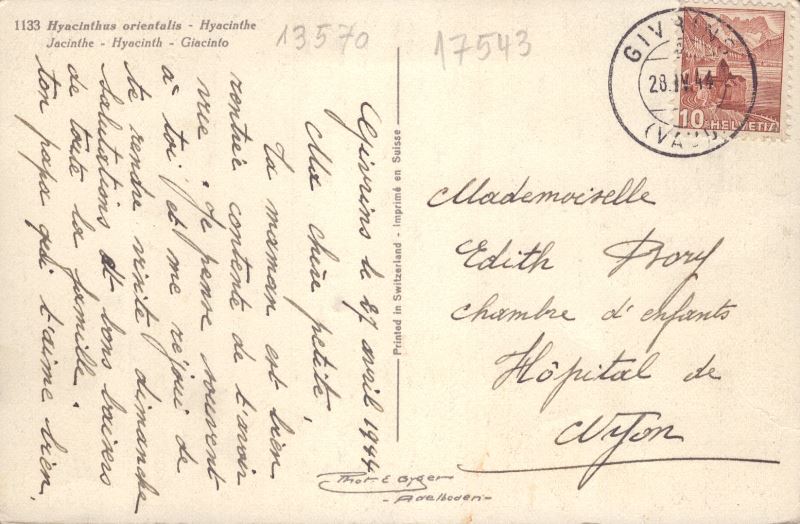 1133 Hyacinthus orientalis - Hyacinthe
Jacinthe - Hyacinth - Giacinto
13570
17543
GIVRINS
28.IV.44
(VAUD)
10 HELVETIA
Givrins le 27 avril 1944
Ma chère petite,
Ta maman est bien
rentrée contente de t'avoir
vue. Je pense souvent
à toi et me réjoui de
te rendre visite dimanche
Salutations et bons baisers
de toute la famille.
ton papa qui t'aime bien.
Printed in Switzerland - Imprimé en Suisse
Mademoiselle
Edith Dory
chambre d'enfants
Hôpital de
Nyon
Phot. E. Gyger
- Adelboden -